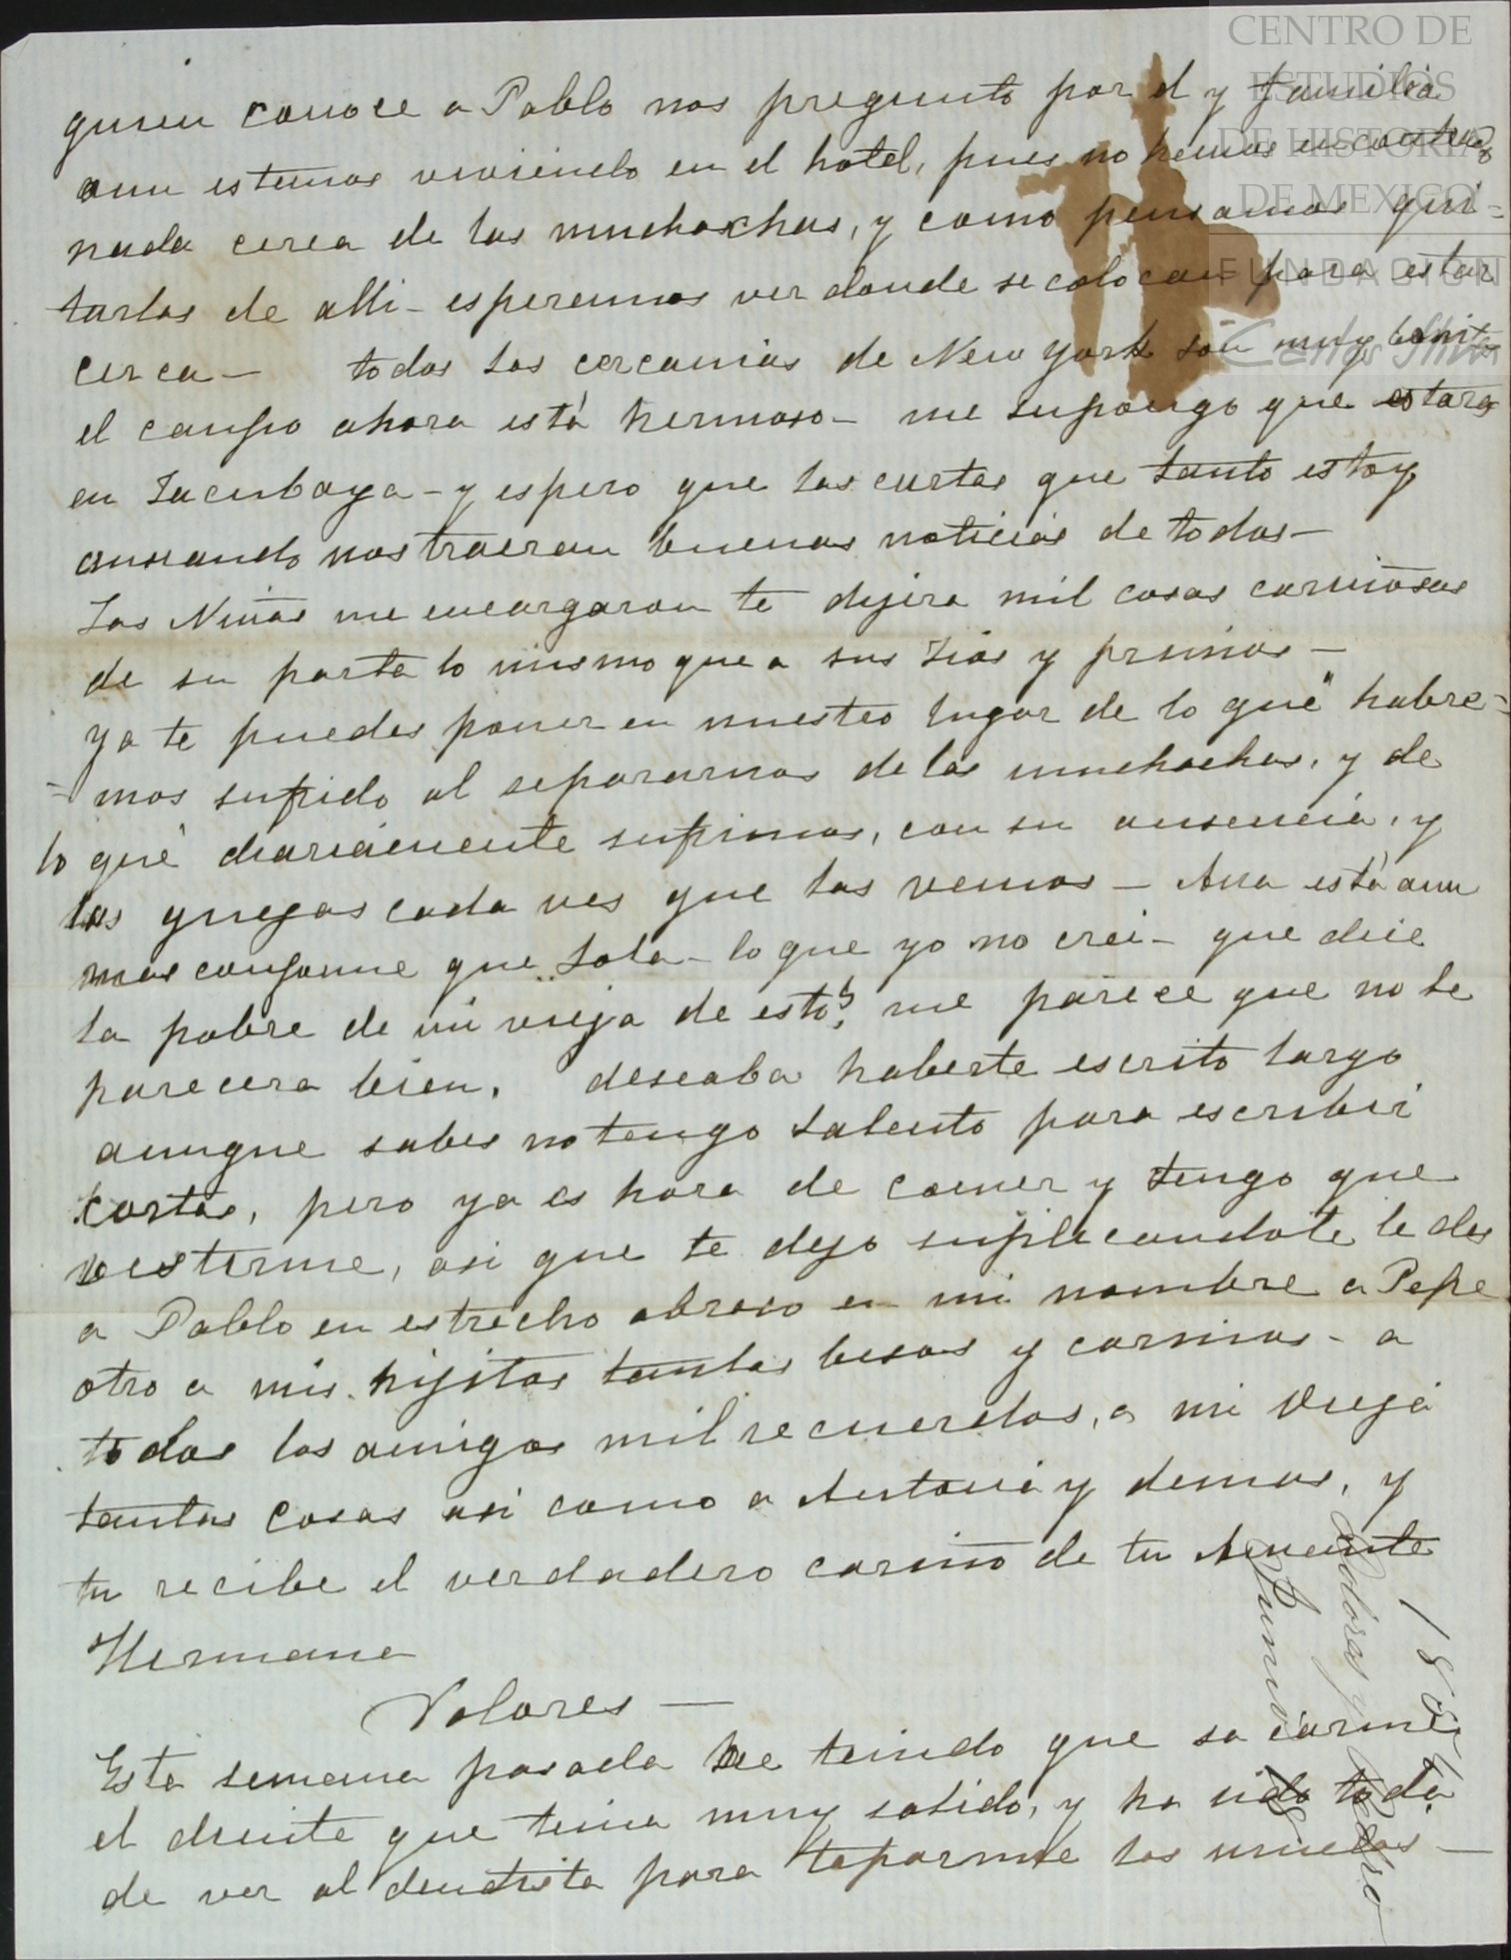 CENTRO DE
ESTUDIOS
DE HISTORIA
DE MEXICO
FUNDACIÓN
quien conoce a Pablo nos pregunto por el y familia
aun estamos viviendo en el hotel, pues no hemos encontrado
nada cerca de las muchachas, y como pensamos qui=
tarlas de alli - esperamos ver donde se colocan para estar
cerca - todas las cercanias de New York son muy bonitas
el campo ahora está hermoso - me supongo que estara
en Tacubaya - y espero que las cartas que tanto estoy
ansiando nos traeran buenas noticias de todos -
Las Niñas me encargaron te dijera mil cosas cariñosas
de su parte lo mismo que a sus Tios y primos -
Ya te puedes poner en nuestro lugar de lo que habre=
=mos sufrido al separarnos de las muchachas, y de
lo que diariamente sufrimos, con su ausencia, y
las quejas cada ves que las vemos - Ana está aun
mas conforme que Lola - lo que yo no crei - que dice
la pobre de mi vieja de esto?, me parece que no le
parecera bien. deseaba haberte escrito largo
aunque sabes no tengo talento para escribir
cartas, pero ya es hora de comer y tengo que
vestirme, asi que te dejo suplicandote le des
a Pablo un estrecho abrazo en mi nombre a Pepe
otro a mis hijitos tantos besos y cariños - a
todos los amigos mil recuerdos, a mi Vieja
tantas cosas asi como a Antonia y demas, y
tu recibe el verdadero cariño de tu Amante
Hermana
Dolores -
Esta semana pasada he tenido que sacarme
el diente que tenia muy salido, y ha sido toda
de ver al dentista para taparme las muelas -
1868
Dolores y Pedro
Junio 18